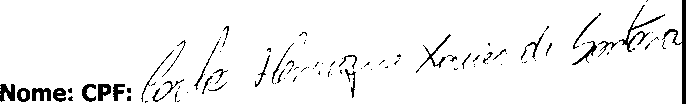 Nome: CPF: Carlos Henrique Xavier de Santana